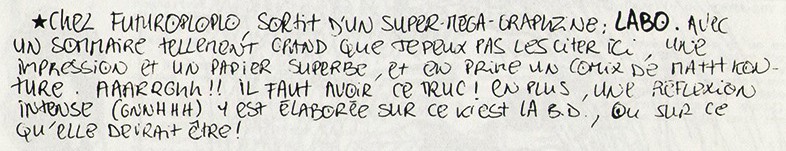 ★ CHEZ FUTUROPLOPLO, SORTIT D'UN SUPER-MEGA-GRAPHZINE: LABO. AVEC
UN SOMMAIRE TELLEMENT GRAND QUE JE PEUX PAS LES CITER ICI, UNE
IMPRESSION ET UN PAPIER SUPERBE, ET EN PRIME UN COMIX DE MATTT KON-
TURE. AAARRGHH!! IL FAUT AVOIR CE TRUC! EN PLUS, UNE RÉFLEXION
INTENSE (GNNHHH) Y EST ÉLABORÉE SUR CE K'EST LA B.D., OU SUR CE
QU'ELLE DEVRAIT ÊTRE!